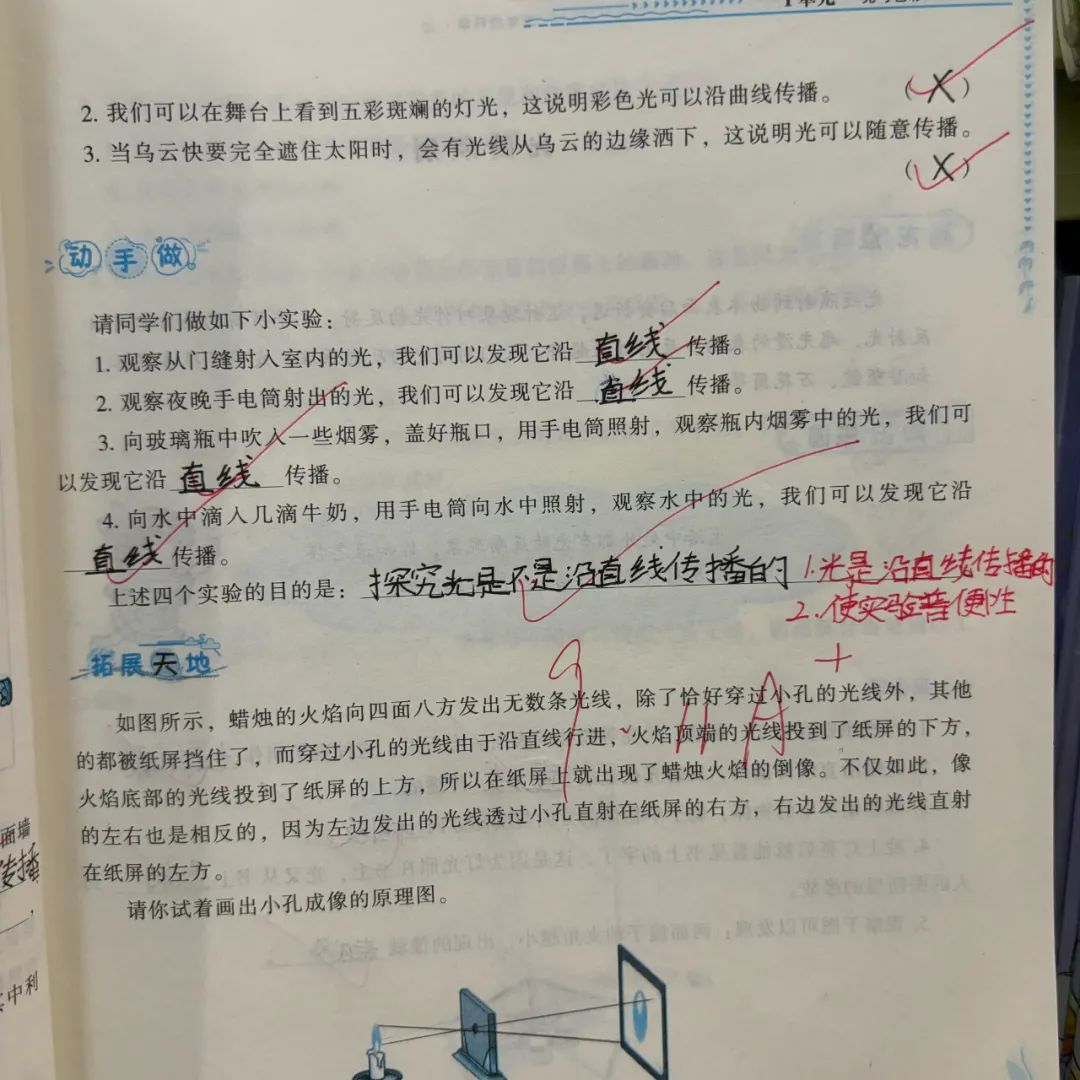 2. 我们可以在舞台上看到五彩斑斓的灯光，这说明彩色光可以沿曲线传播。（X）
3. 当乌云快要完全遮住太阳时，会有光线从乌云的边缘洒下，这说明光可以随意传播。
（X）
动手做
请同学们做如下小实验：
1. 观察从门缝射入室内的光，我们可以发现它沿 直线 传播。
2. 观察夜晚手电筒射出的光，我们可以发现它沿 直线 传播。
3. 向玻璃瓶中吹入一些烟雾，盖好瓶口，用手电筒照射，观察瓶内烟雾中的光，我们可
以发现它沿 直线 传播。
4. 向水中滴入几滴牛奶，用手电筒向水中照射，观察水中的光，我们可以发现它沿
直线 传播。
上述四个实验的目的是：探究光是不是沿直线传播的
1.光是沿直线传播的
2.使实验普便性
拓展天地
A+
如图所示，蜡烛的火焰向四面八方发出无数条光线，除了恰好穿过小孔的光线外，其他
的都被纸屏挡住了，而穿过小孔的光线由于沿直线行进，火焰顶端的光线投到了纸屏的下方，
火焰底部的光线投到了纸屏的上方，所以在纸屏上就出现了蜡烛火焰的倒像。不仅如此，像
的左右也是相反的，因为左边发出的光线透过小孔直射在纸屏的右方，右边发出的光线直射
在纸屏的左方。
请你试着画出小孔成像的原理图。
面墙
传播
中利